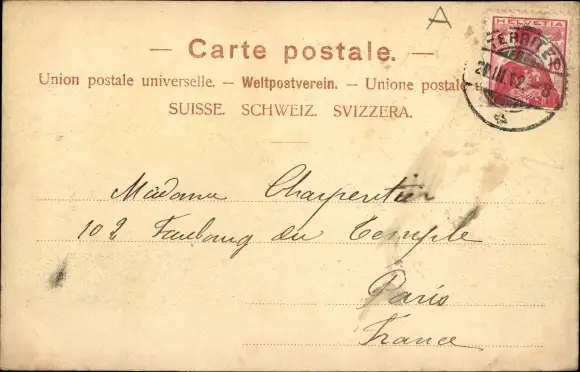 A
HELVETIA
— Carte postale. —
Union postale universelle. — Weltpostverein. — Unione postale
SUISSE. SCHWEIZ. SVIZZERA.
Madame Charpentier
102 Faubourg du Temple
Paris
France